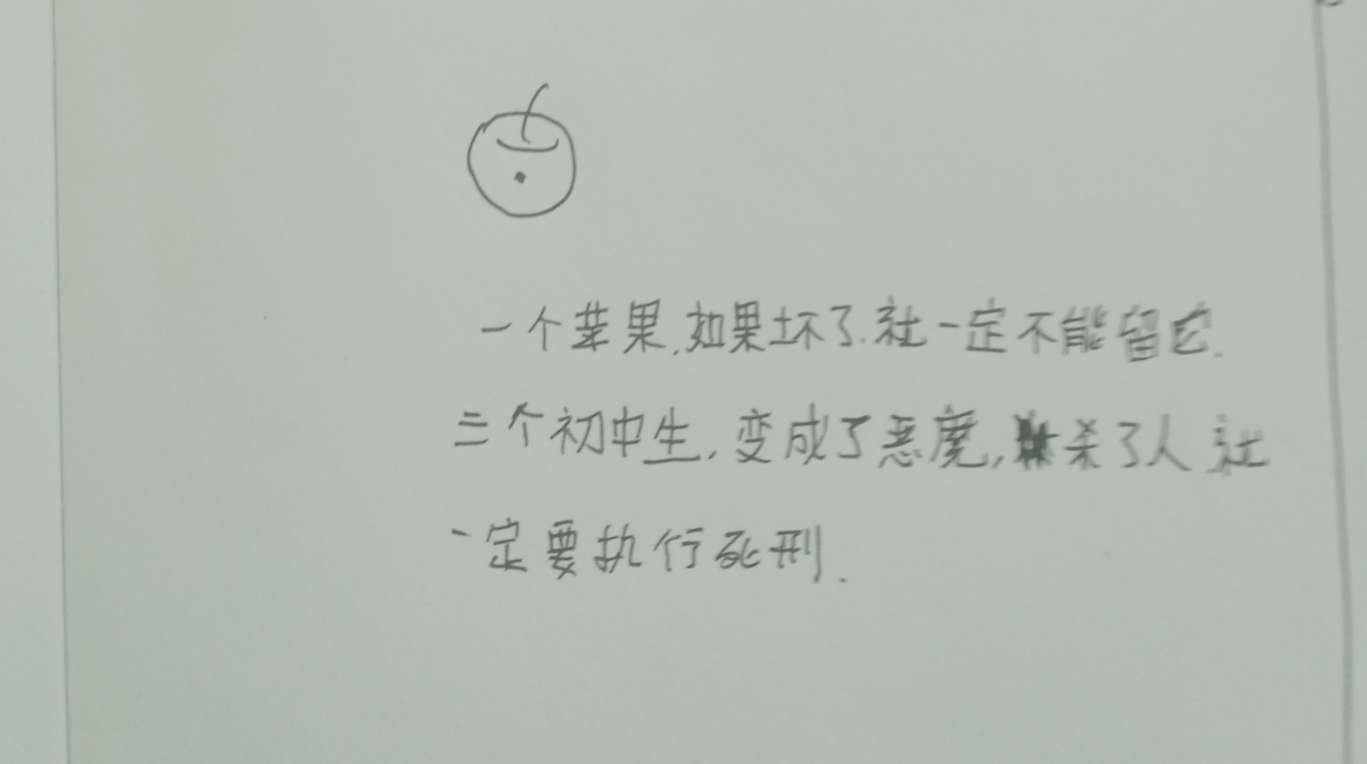 一个苹果,如果坏了.就一定不能留它.
三个初中生,变成了恶魔,杀了人就
一定要执行死刑.